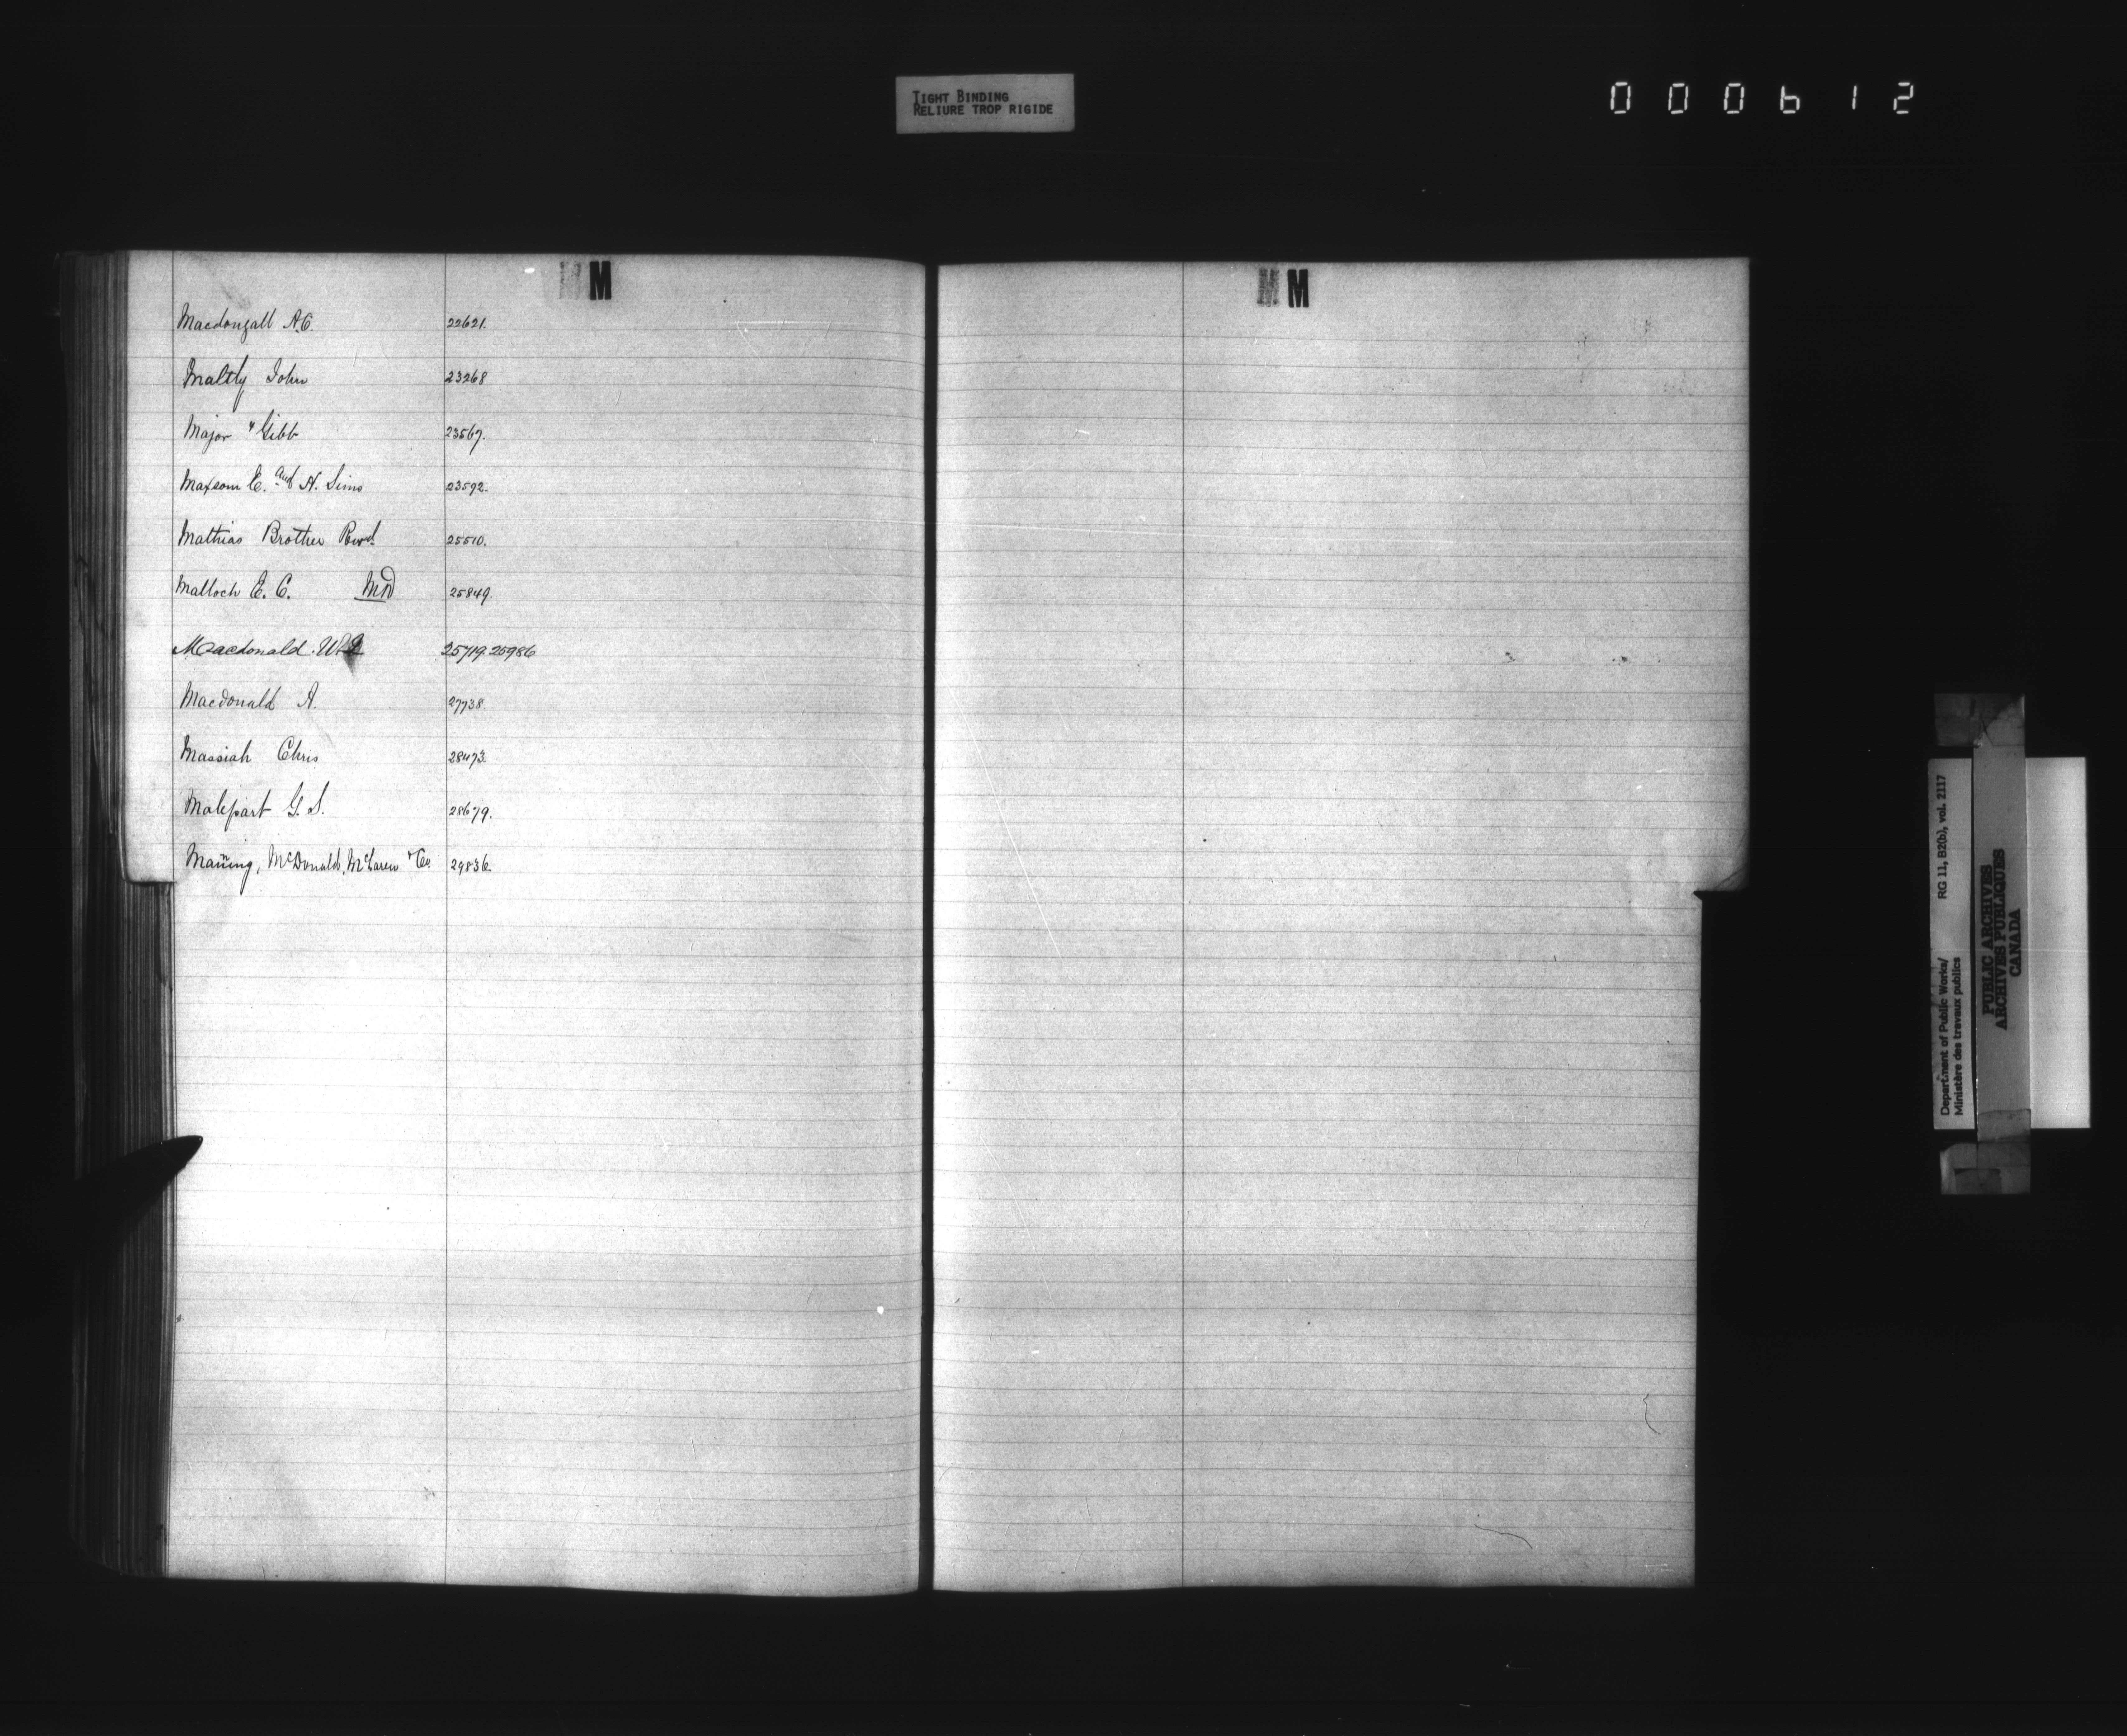 TIGHT BINDING
RELIURE TROP RIGIDE
000612
M
M
Macdougall A.C. 22621.
Maltby John 23268
Major & Gibb 23567.
Maxsom E. and H. Sims 23592.
Mathias Brother Revd. 25510.
Malloch E. C. MD 25849.
Macdonald. 25719 25986
Macdonald A. 27738
Massiah Chris 28473.
Malepart G. S. 28679.
Maning, McDonald, McLaren & Co. 29836.
Department of Public Works/ RG 11, B20(b), vol. 2117
Ministère des travaux publics
PUBLIC ARCHIVES
ARCHIVES PUBLIQUES
CANADA